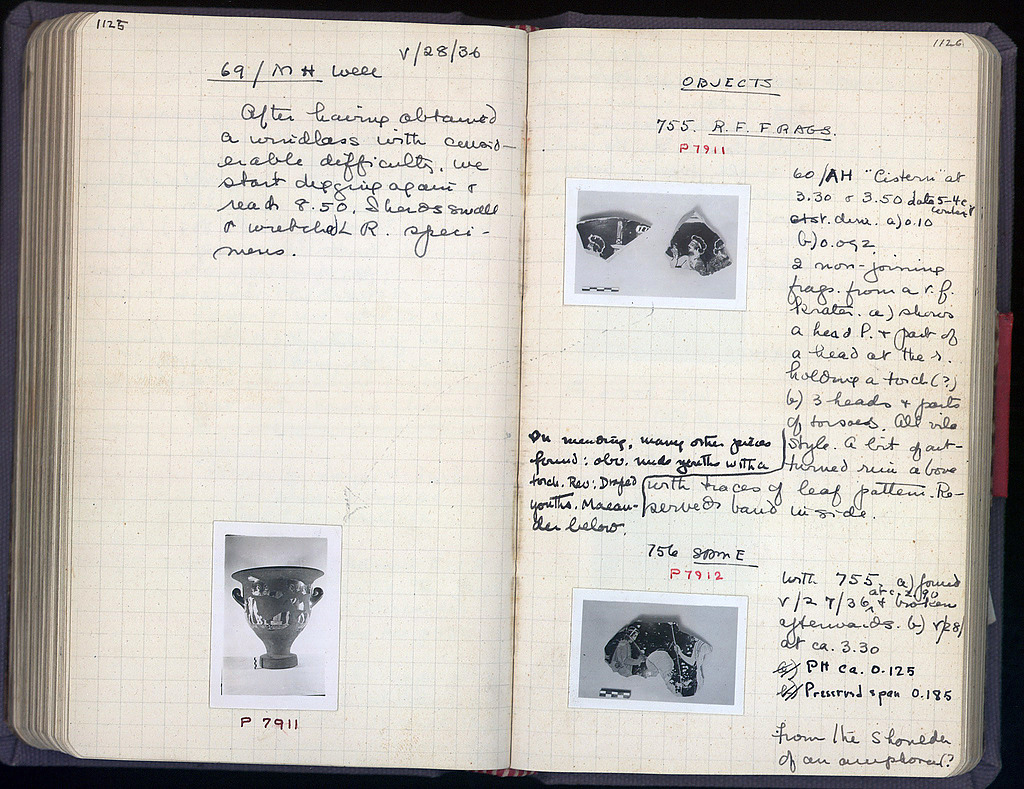 1125
V/28/36
69/MH Well
After having obtained
a windlass with consid-
erable difficulty, we
start digging again &
reach 8.50. Sherds small
& wretched R. speci-
mens.
P 7911
1126
OBJECTS
755. R.F. FRAGS.
P 7911
60/AH "Cistern" at
3.30 & 3.50 date 5-4c
context
dim. a) 0.10
b) 0.092
2 non-joining
frags. from a r.f.
krater. a) shows
a head l. & part of
a head at the r.
holding a torch (?)
b) 3 heads & parts
of torsoes. All vile
style. A bit of out-
turned rim above
with traces of leaf pattern. Re-
served band inside.
On mending, many other pieces
found: obv. nude youths with a
torch. Rev: Draped
youths. Maean-
der below.
756 SAME
P 7912
With 755, a) found
V/27/36, at c. 2.90 & broken
afterwards. b) V/28/
at ca. 3.30
a) PH ca. 0.125
b) Preserved span 0.185
from the shoulder
of an amphora?